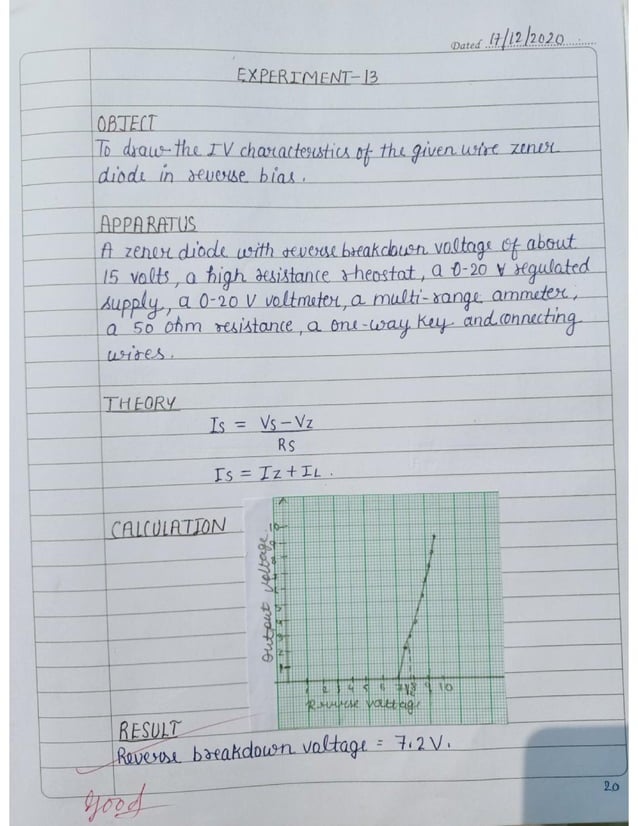 Dated 17/12/2020
EXPERIMENT-13
OBJECT
To draw the IV characteristics of the given wire zener
diode in reverse bias.
APPARATUS
A zener diode with reverse breakdown voltage of about
15 volts, a high resistance rheostat, a 0-20 V regulated
supply, a 0-20 V voltmeter, a multi-range ammeter,
a 50 ohm resistance, a one-way key and connecting
wires.
THEORY
Is = Vs-Vz
Rs
Is = Iz + IL.
CALCULATION
Output voltage
1 2 3 4 5 6 7 8 9 10
Reverse voltage
RESULT
Reverse breakdown voltage = 7.2 V.
20
good